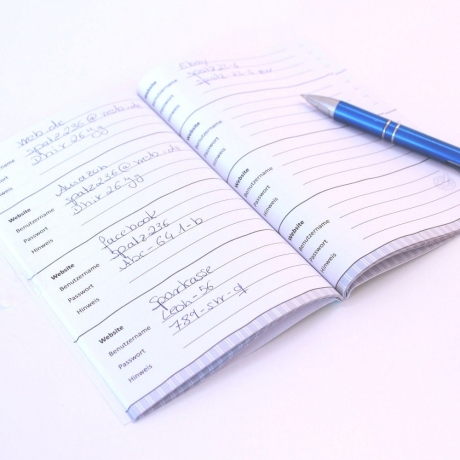 web.de
spatz236@web.de
Passwort
Hinweis
Website Amazon
Benutzername spatz236@web.de
Passwort
Hinweis
Website facebook
Benutzername spatz236
Passwort Abc-641-b
Hinweis
Website Sparkasse
Benutzername Leon-56
Passwort
Hinweis
Ebay
Website
Benutzername
Passwort
Hinweis
Website
Benutzername
Passwort
Hinweis
Website
Benutzername
Passwort
Hinweis